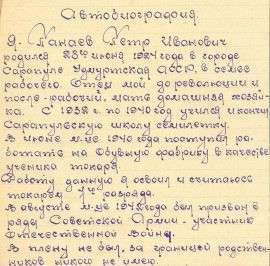 Автобиография.
Я. Панаев Петр Иванович
родился 23го июня 1924 года в городе
Сарапуле Удмуртская АССР. в семье
рабочего. Отец мой до революции и
после - рабочий, мать домашняя хозяй-
ка. С 1932 г. по 1940 год учился и кончил
Сарапульскую школу семилетку.
В июне м-це 1940 года поступил ра-
ботать на Обувную фабрику в качестве
ученика токаря.
Работу данную я освоил и считаюсь
токарем разряда.
В августе м-це 1942 года был призван в
ряды Советской Армии - участник
Отечественной Войны.
В плену не был, за границей родствен-
ников никого не имею.